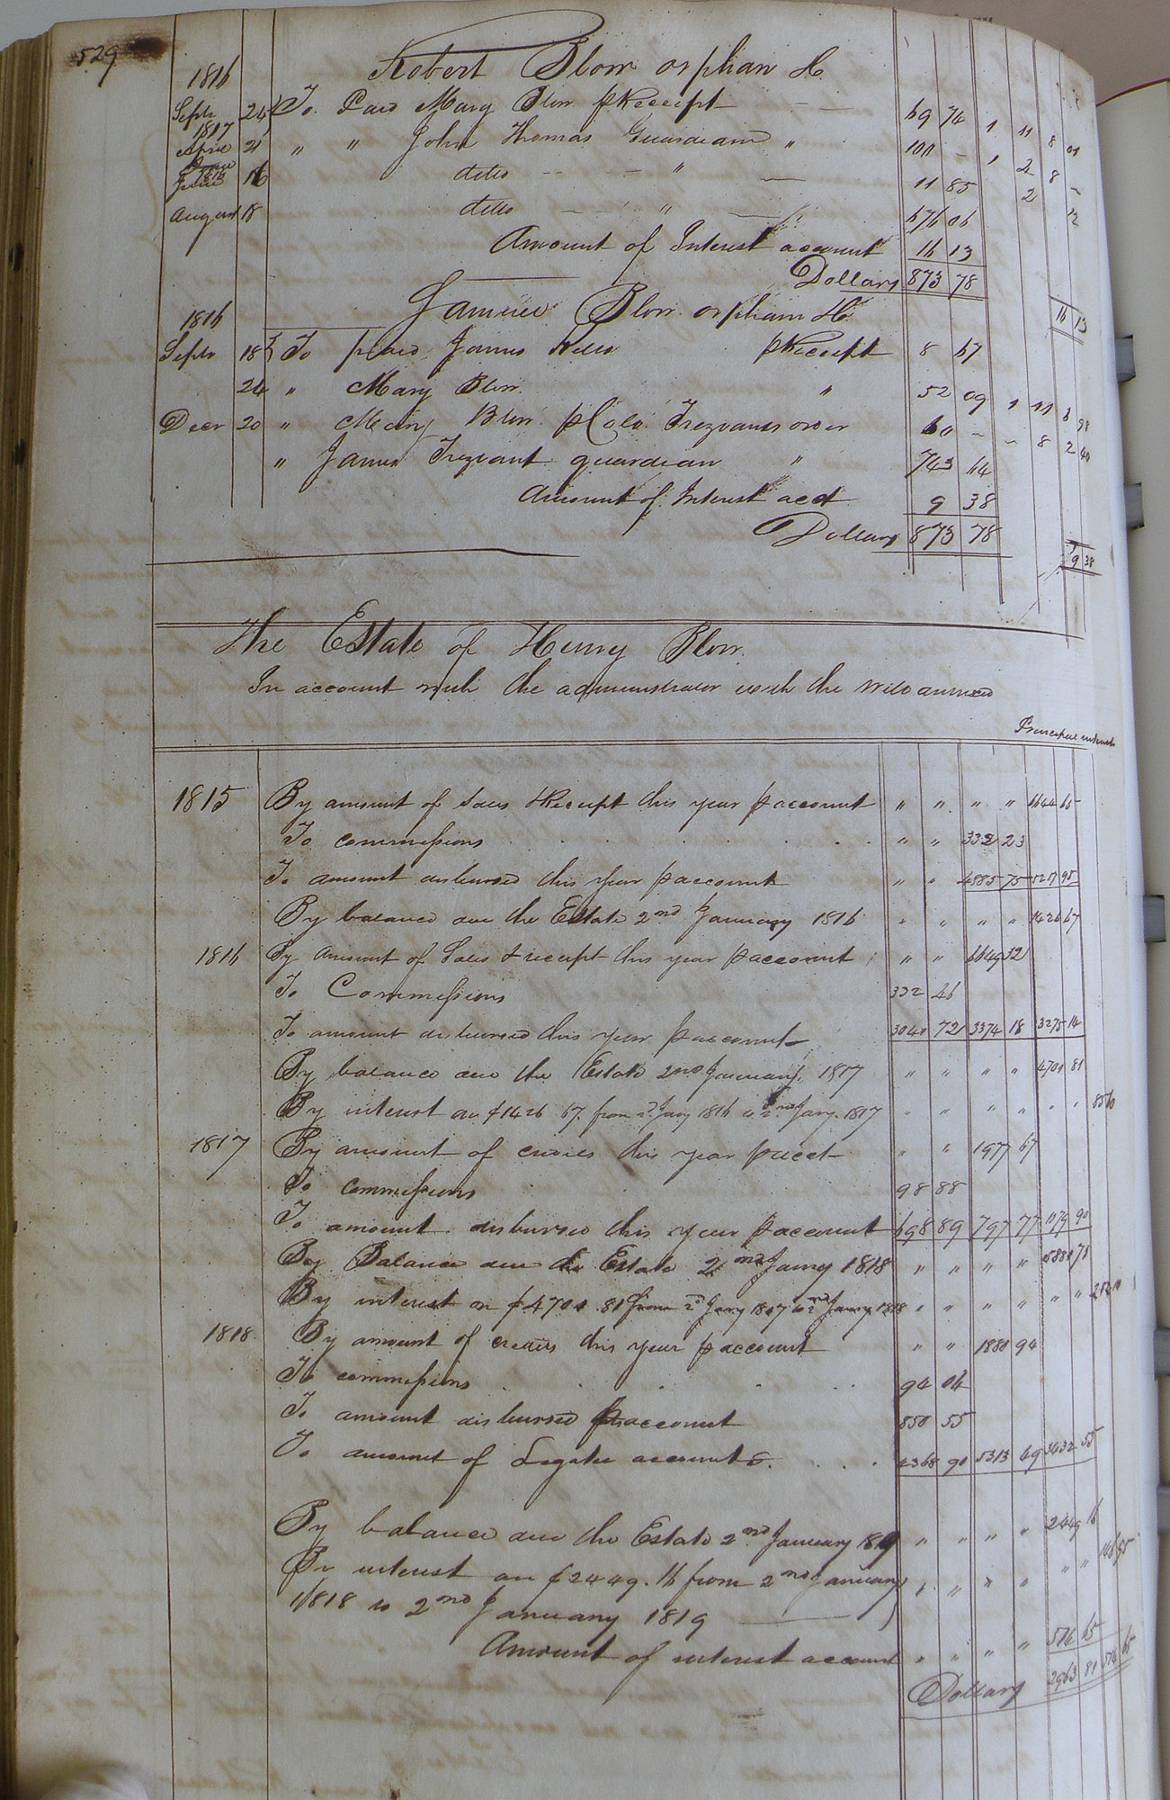 529
Robert Blow orphan &c
1816
Septr 24 To Paid Mary Blow p Receipt 69 74 1 11 8
1817
April 21 " " John Thomas Guardian " 100 - 1 2 8 -
June 16 ditto - " - 11 85 2
August 18 ditto - " - 676 06
Amount of Interest account 16 13
Dollars 873 78
16 13
Blow orphan &c
1816
Septr 18 To paid James p Receipt 8 67
24 " Mary Blow " 52 09 1 11 3 98
Decr 20 " Mary Blow p Colo Trezvants order 60 - - 8 2 40
" James Trezvant guardian " 743 64
Amount of Interest acct 9 38
Dollars 873 78
9 38
The Estate of Henry Blow
In account with the administrator with the Will annexed
Principal interest
1815 By amount of Sales & Receipt this year p account " " " " 65
To commissions " " 332 23
To amount disbursed this year p account " " 4885 75 5217 98
By balance due the Estate 2nd January 1816 " " " " 1426 67
1816 By amount of Sales & receipt this year p account " " 6649 32
To Commissions 332 46
To amount disbursed this year p account 3040 72 3374 18 3275 14
By balance due the Estate 2nd January 1817 " " " " 4701 81
By interest on $1426 67. from 2d Jany 1816 to 2nd Jany. 1817 " " " " " " 85 60
1817 By amount of credits this year p acct " " 1977 67
To commissions 98 88
To amount disbursed this year p account 698 89 797 77 1179 90
By Balance due the Estate 2nd Jany 1818 " " " " 71
By interest on $4701.81 from 2d Jany 1817 to 2nd Jany 1818 " " " " " "
1818 By amount of credits this year p account " " 1880 94
To commissions 94 04
To amount disbursed p account 850 55
To amount of Legatee accounts 4368 90 5313 49 3432 55
By balance due the Estate 2nd January 1819 " " " " 2449 16
By interest on $2449.16 from 2nd January " " " " " "
1818 to 2nd January 1819
Amount of interest account " " " " 65
Dollars 81 65